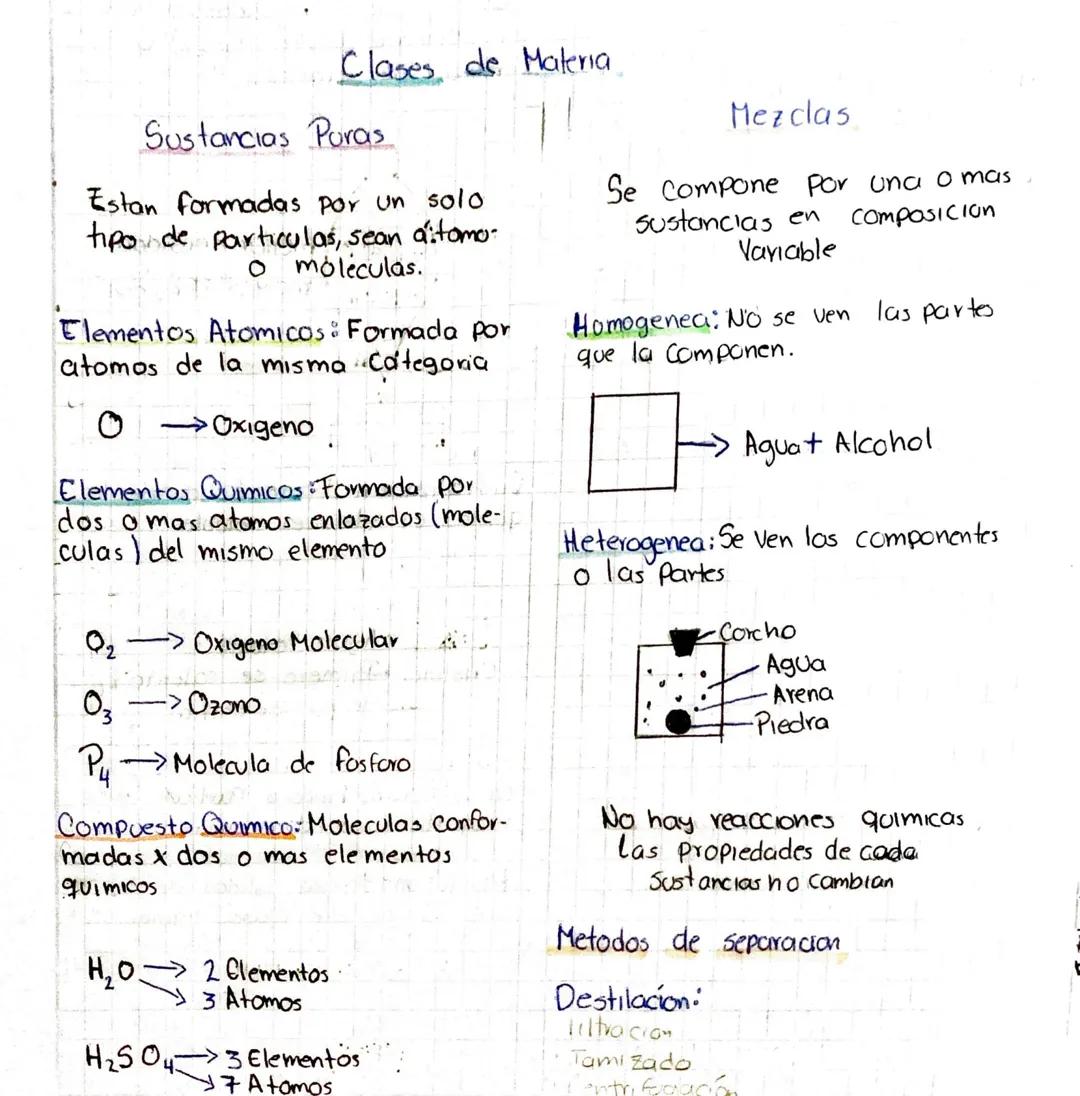 Clases de Materia
Sustancias Puras
Estan formadas por un solo
tipo de particulas, sean átomo
o moléculas.
Elementos Atomicos: Formada por
atomos de la misma Categoria
O → Oxigeno
Elementos Quimicos: Formada por
dos o mas atomos enlazados (mole-
culas) del mismo elemento
O₂ → Oxigeno Molecular
O₃ → Ozono
P₄ → Molecula de fosforo
Compuesto Quimico: Moleculas confor-
madas x dos o mas elementos
quimicos
H₂O → 2 Elementos
→ 3 Atomos
H₂SO₄ → 3 Elementos
→ 7 Atomos
Mezclas
Se compone por una o mas
sustancias en composicion
Variable
Homogenea: No se ven las partes
que la componen.
→ Agua + Alcohol
Heterogenea: Se ven los componentes
o las Partes
Corcho
Agua
Arena
Piedra
No hay reacciones quimicas
Las Propiedades de cada
Sustancias no cambian
Metodos de separacion
Destilacion:
Filtracion
Tamizado